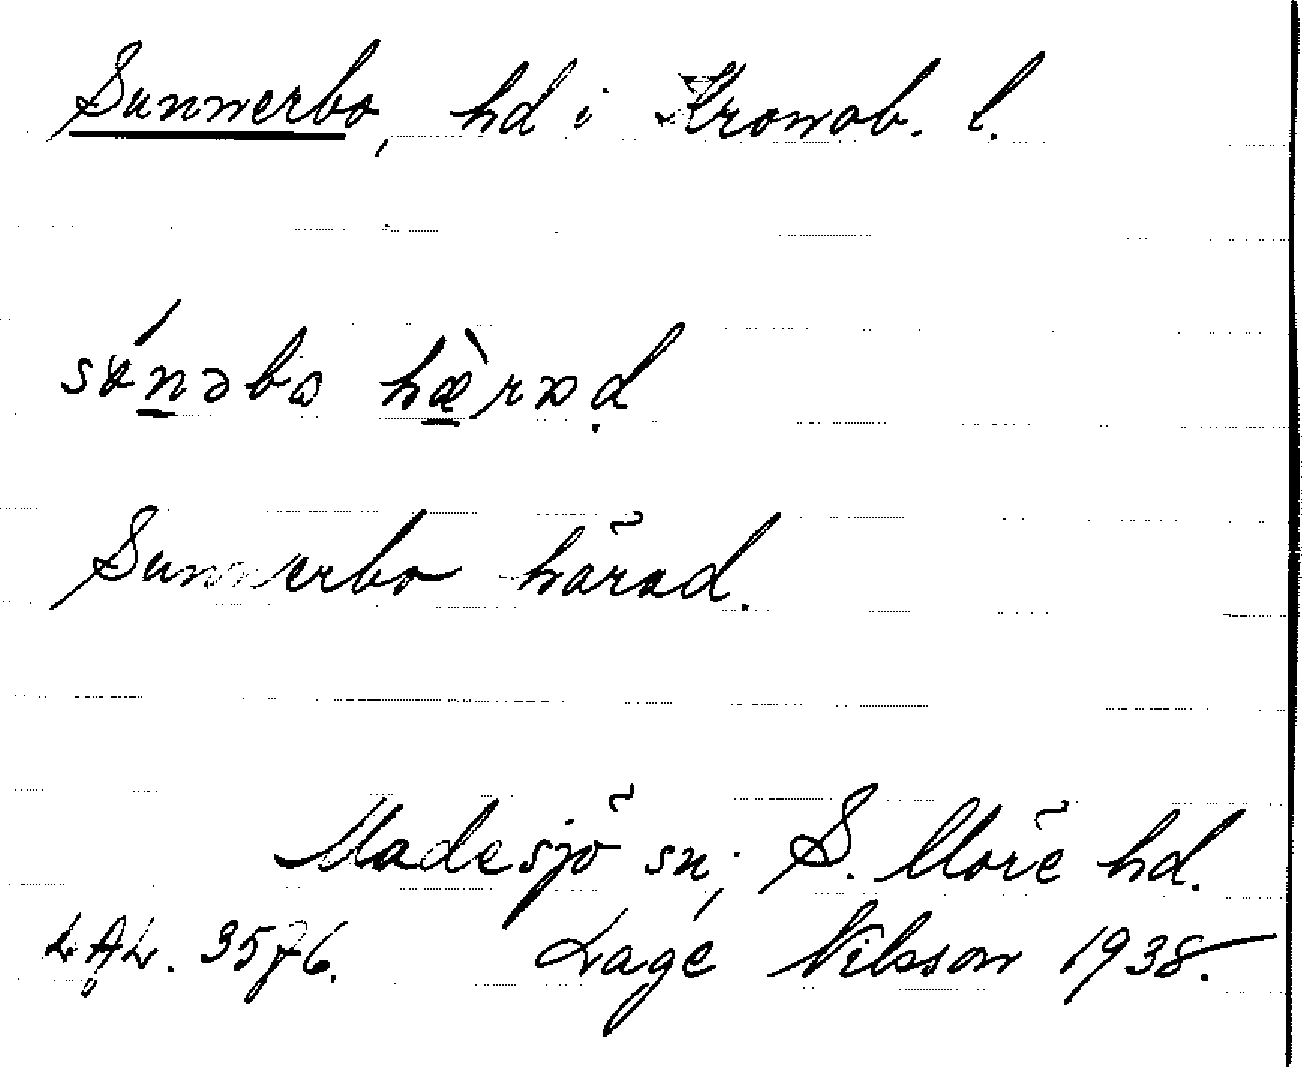 Sunnerbo, hd i Kronob. l.
súnəba hæ̀rad
Sunnerbo härad.
Madesjö sn; S. Möre hd.
LAL. 3576. Lage Nilsson 1938.